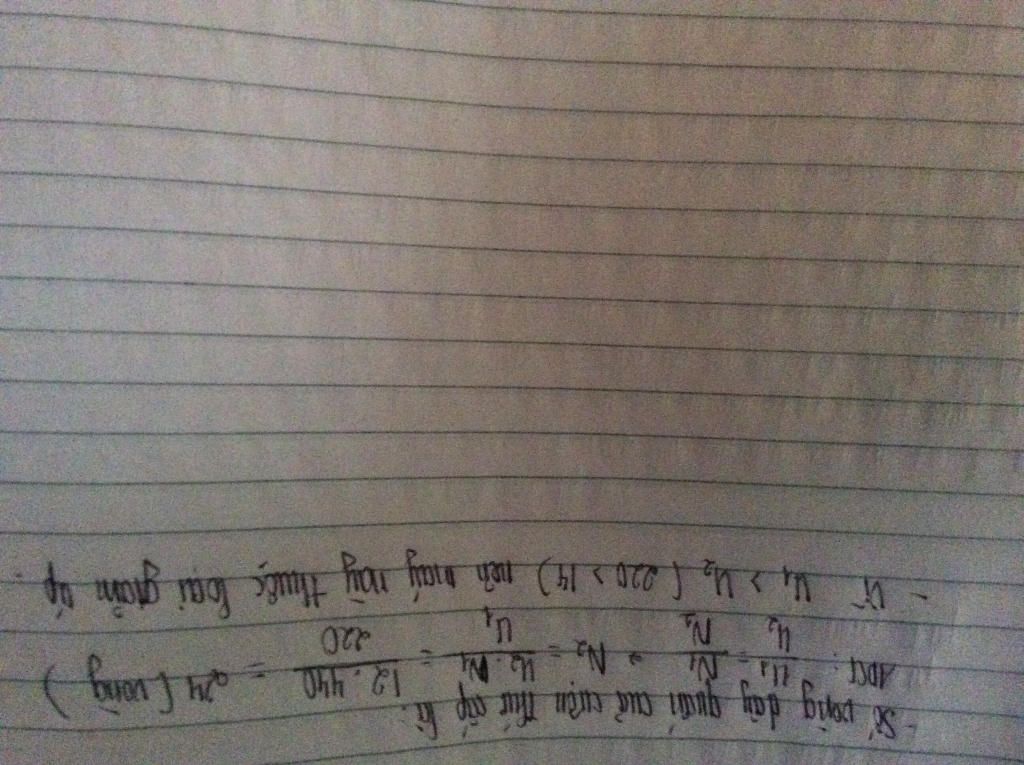 - Số vòng dây quấn của cuộn thứ cấp là:
ADCT: U1/U2 = N1/N2 → N2 = U2.N1/U1 = 12.440/220 = 24 (vòng)
- Vì U1 > U2 (220 > 14) nên máy này thuộc loại giảm áp.